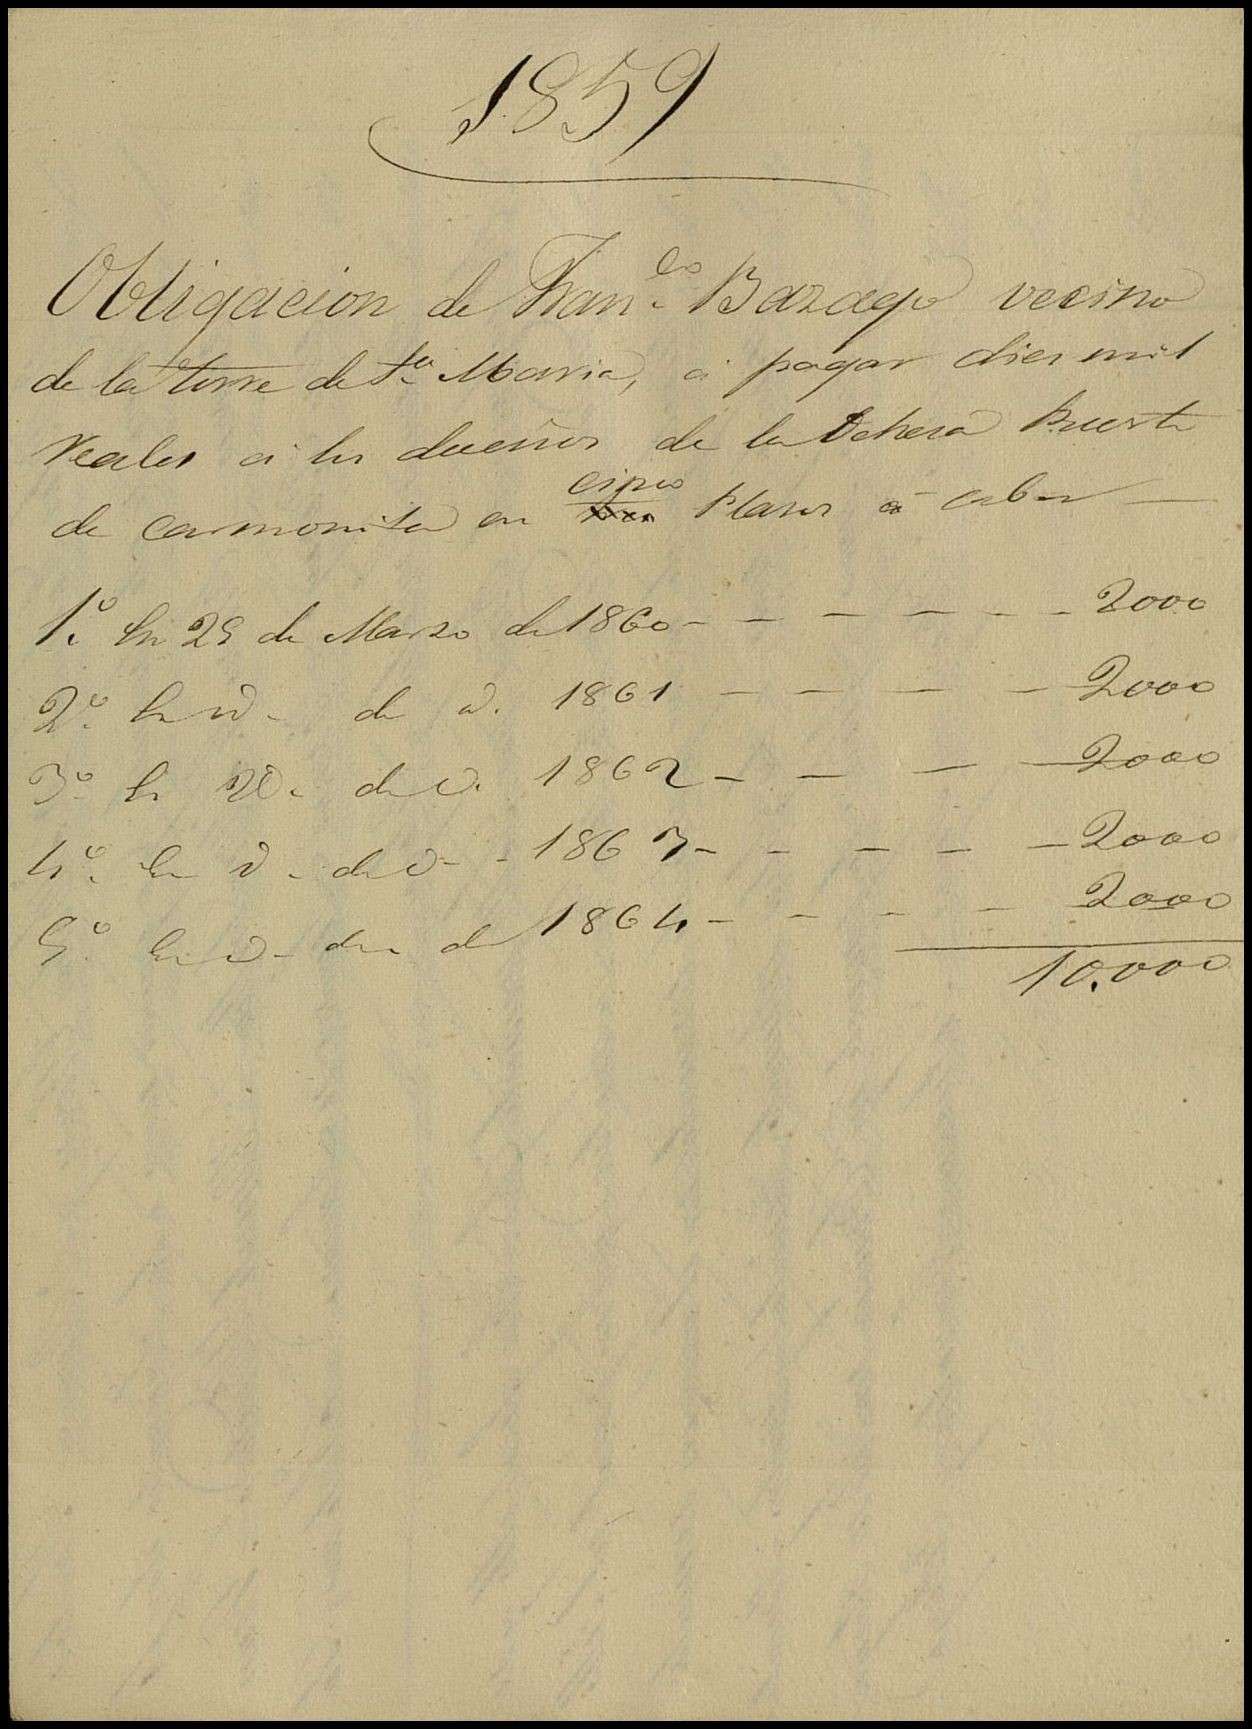 1859
Obligacion de Fran.co Bazago vecino
de la torre de Sta Maria, á pagar dies mil
Reales á los dueños de la Dehesa Puerto
de carmonita en cinco Plasos á saber
1.º En 25 de Marzo de 1860 - - - - - - 2000
2.º En id. de id. 1861 - - - - 2000
3.º En id. de id. 1862 - - - - 2000
4.º En id. de id. - 1863 - - - - - 2000
5.º En id. de id. 1864 - - - - 2000
10.000